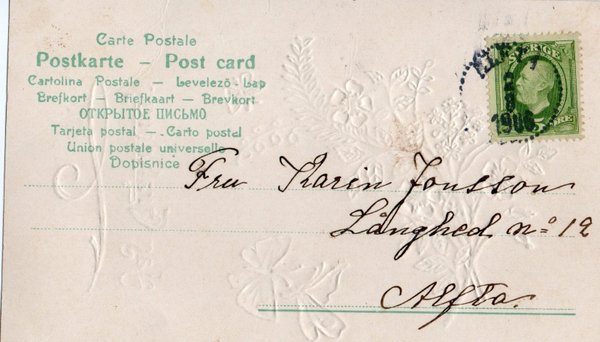 Carte Postale
Postkarte – Post card
Cartolina Postale – Levelező-Lap
Brefkort – Briefkaart – Brevkort
ОТКРЫТОЕ ПИСЬМО
Tarjeta postal – Carto postel
Union postale universelle
Dopisnice
SVERIGE
1906
Fru Karin Jonsson
Långhed nº 12
Alfta.